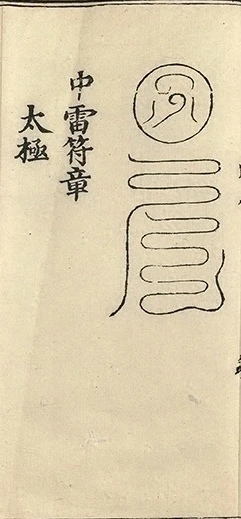 中雷符章
太極